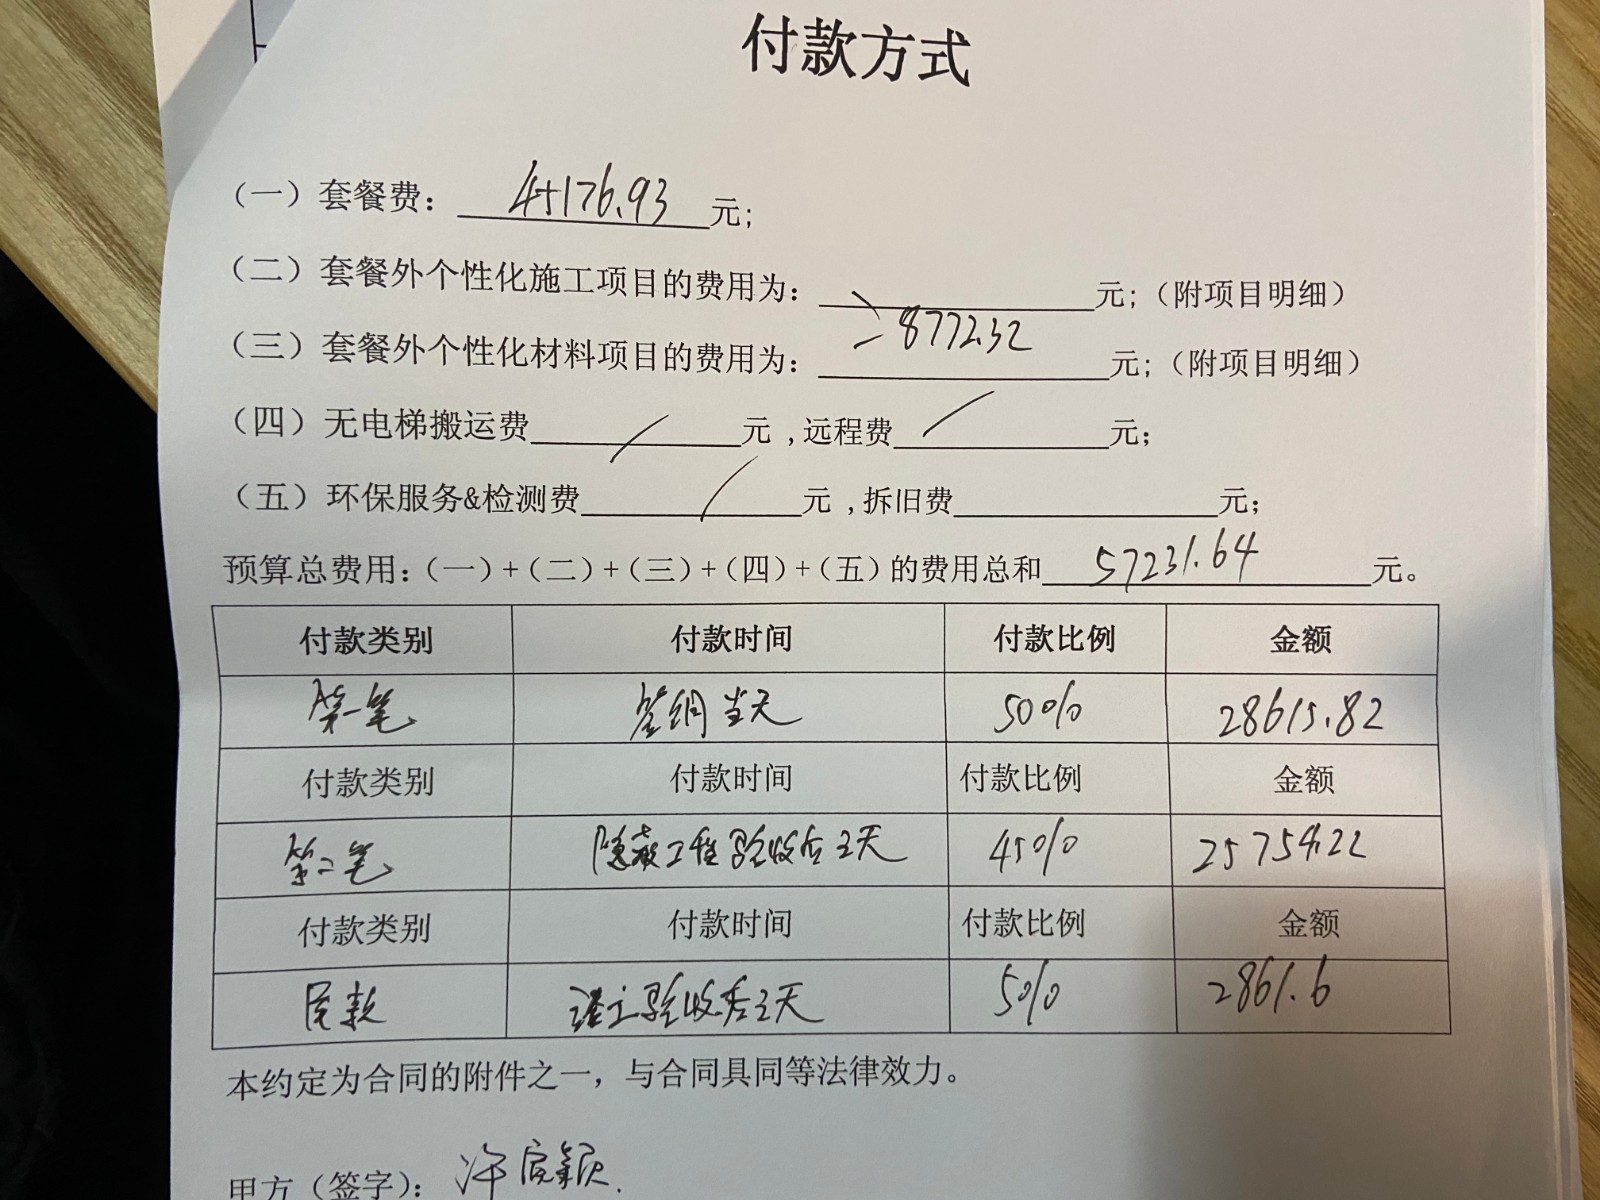 付款方式
（一）套餐费： 45176.93 元;
（二）套餐外个性化施工项目的费用为： 元;（附项目明细）
8772.32
（三）套餐外个性化材料项目的费用为： 元;（附项目明细）
（四）无电梯搬运费 / 元 ,远程费 / 元;
（五）环保服务&检测费 / 元 ,拆旧费 元;
预算总费用：（一）+（二）+（三）+（四）+（五）的费用总和 57231.64 元。
付款类别 付款时间 付款比例 金额
第一笔 当天 50% 28615.82
付款类别 付款时间 付款比例 金额
第二笔 隐蔽工程验收后3天 45% 25754.22
付款类别 付款时间 付款比例 金额
尾款 竣工验收后3天 5% 2861.6
本约定为合同的附件之一，与合同具同等法律效力。
甲方（签字）： 许